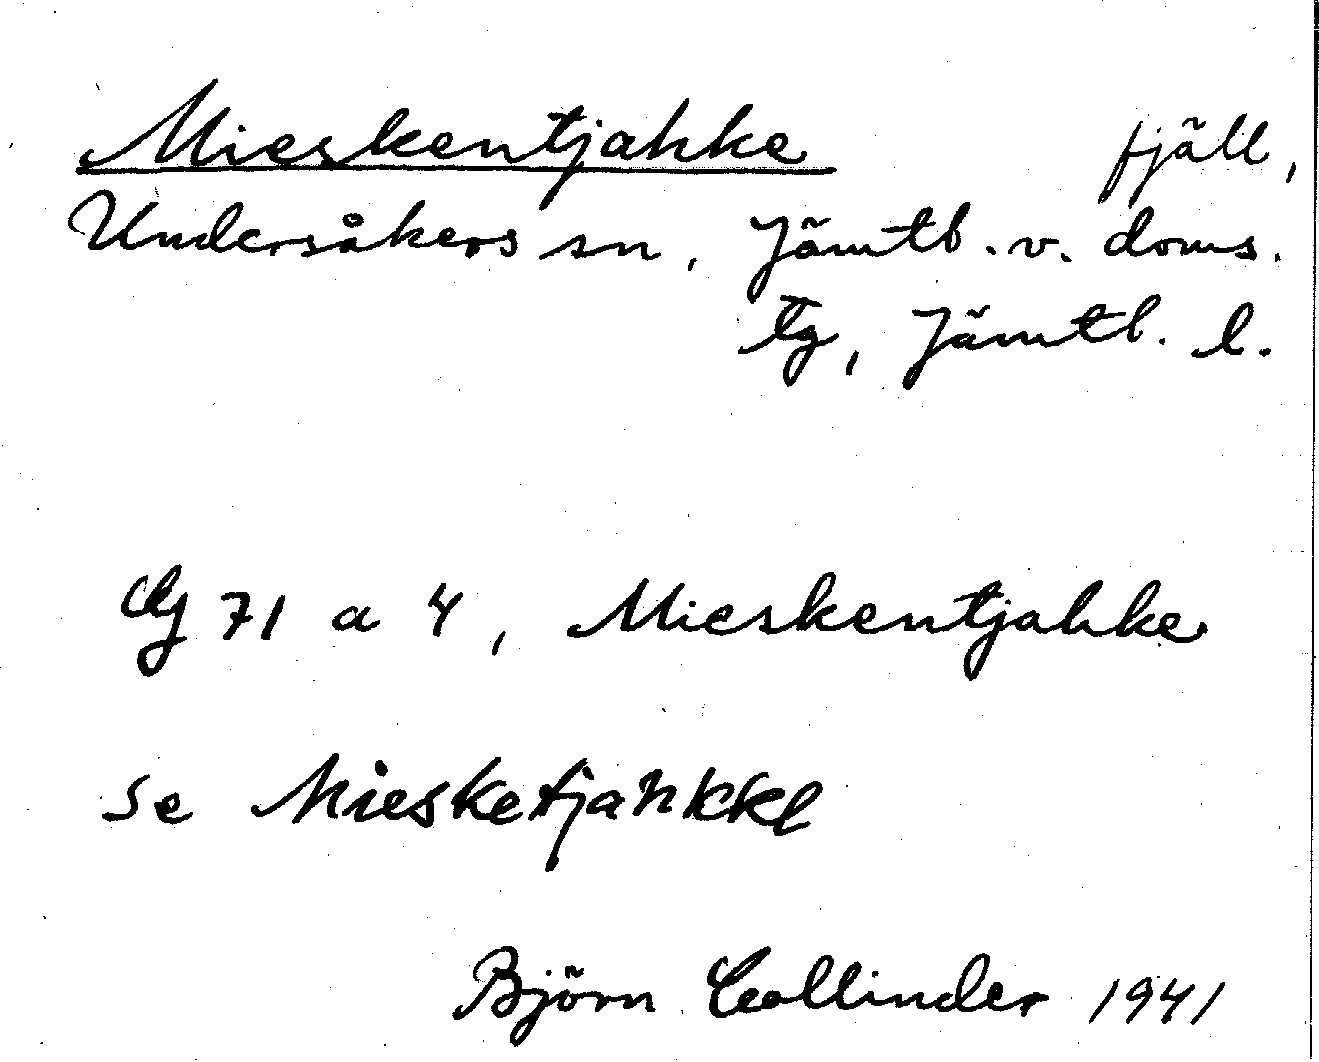 Mieskentjahke fjäll,
Undersåkers sn, Jämtl. v. doms.
tg, Jämtl. l.
71 a 4, Mieskentjahke
se Miesketjahkke
Björn Collinder 1941